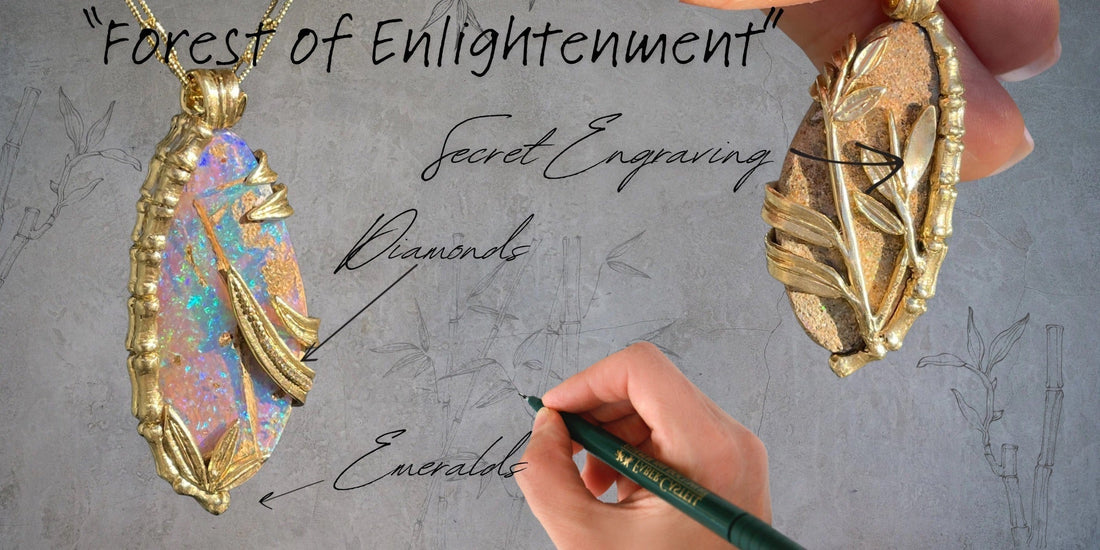 "Forest of Enlightenment"
Secret Engraving
Diamonds
Emeralds
FABER-CASTELL